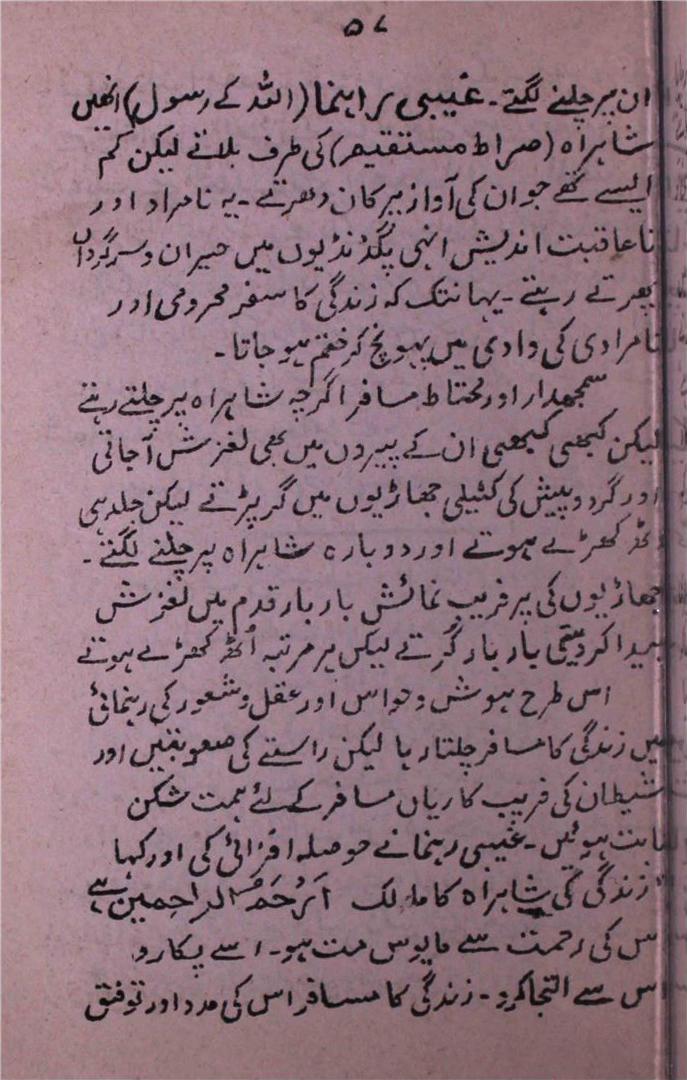 ۵۷
ان پر چلنے لگتے۔ غیبی راہنما (اللہ کے رسول) انھیں
شاہراہ (صراط مستقیم) کی طرف بلاتے لیکن کم
ایسے تھے جو ان کی آواز پر کان دھرتے۔ یہ نامراد اور
ناعاقبت اندیش انہی پگڈنڈیوں میں حیران و سرگرداں
پھرتے رہتے۔ یہانتک کہ زندگی کا سفر محرومی اور
نامرادی کی وادی میں پہونچ کر ختم ہو جاتا۔
سمجھدار اور محتاط مسافر اگرچہ شاہراہ پر چلتے رہتے
لیکن کبھی کبھی ان کے پیروں میں بھی لغزش آجاتی
اور گردوپیش کی کٹیلی جھاڑیوں میں گر پڑتے لیکن جلد ہی
اٹھ کھڑے ہوتے اور دوبارہ شاہراہ پر چلنے لگتے۔
جھاڑیوں کی پر فریب نمائش بار بار قدم میں لغزش
پیدا کر دیتی بار بار گرتے لیکن ہر مرتبہ اُٹھ کھڑے ہوتے
اس طرح ہوش و حواس اور عقل و شعور کی رہنمائی
میں زندگی کا مسافر چلتا رہا لیکن راستے کی صعوبتیں اور
شیطان کی فریب کاریاں مسافر کے لئے ہمت شکن
ثابت ہوئیں۔ غیبی رہنما نے حوصلہ افزائی کی اور کہا
"زندگی کی شاہراہ کا مالک اَرْحَمُ الراحمین ہے
اس کی رحمت سے مایوس مت ہو۔ اسے پکارو
اس سے التجا کرو۔ زندگی کا مسافر اس کی مدد اور توفیق